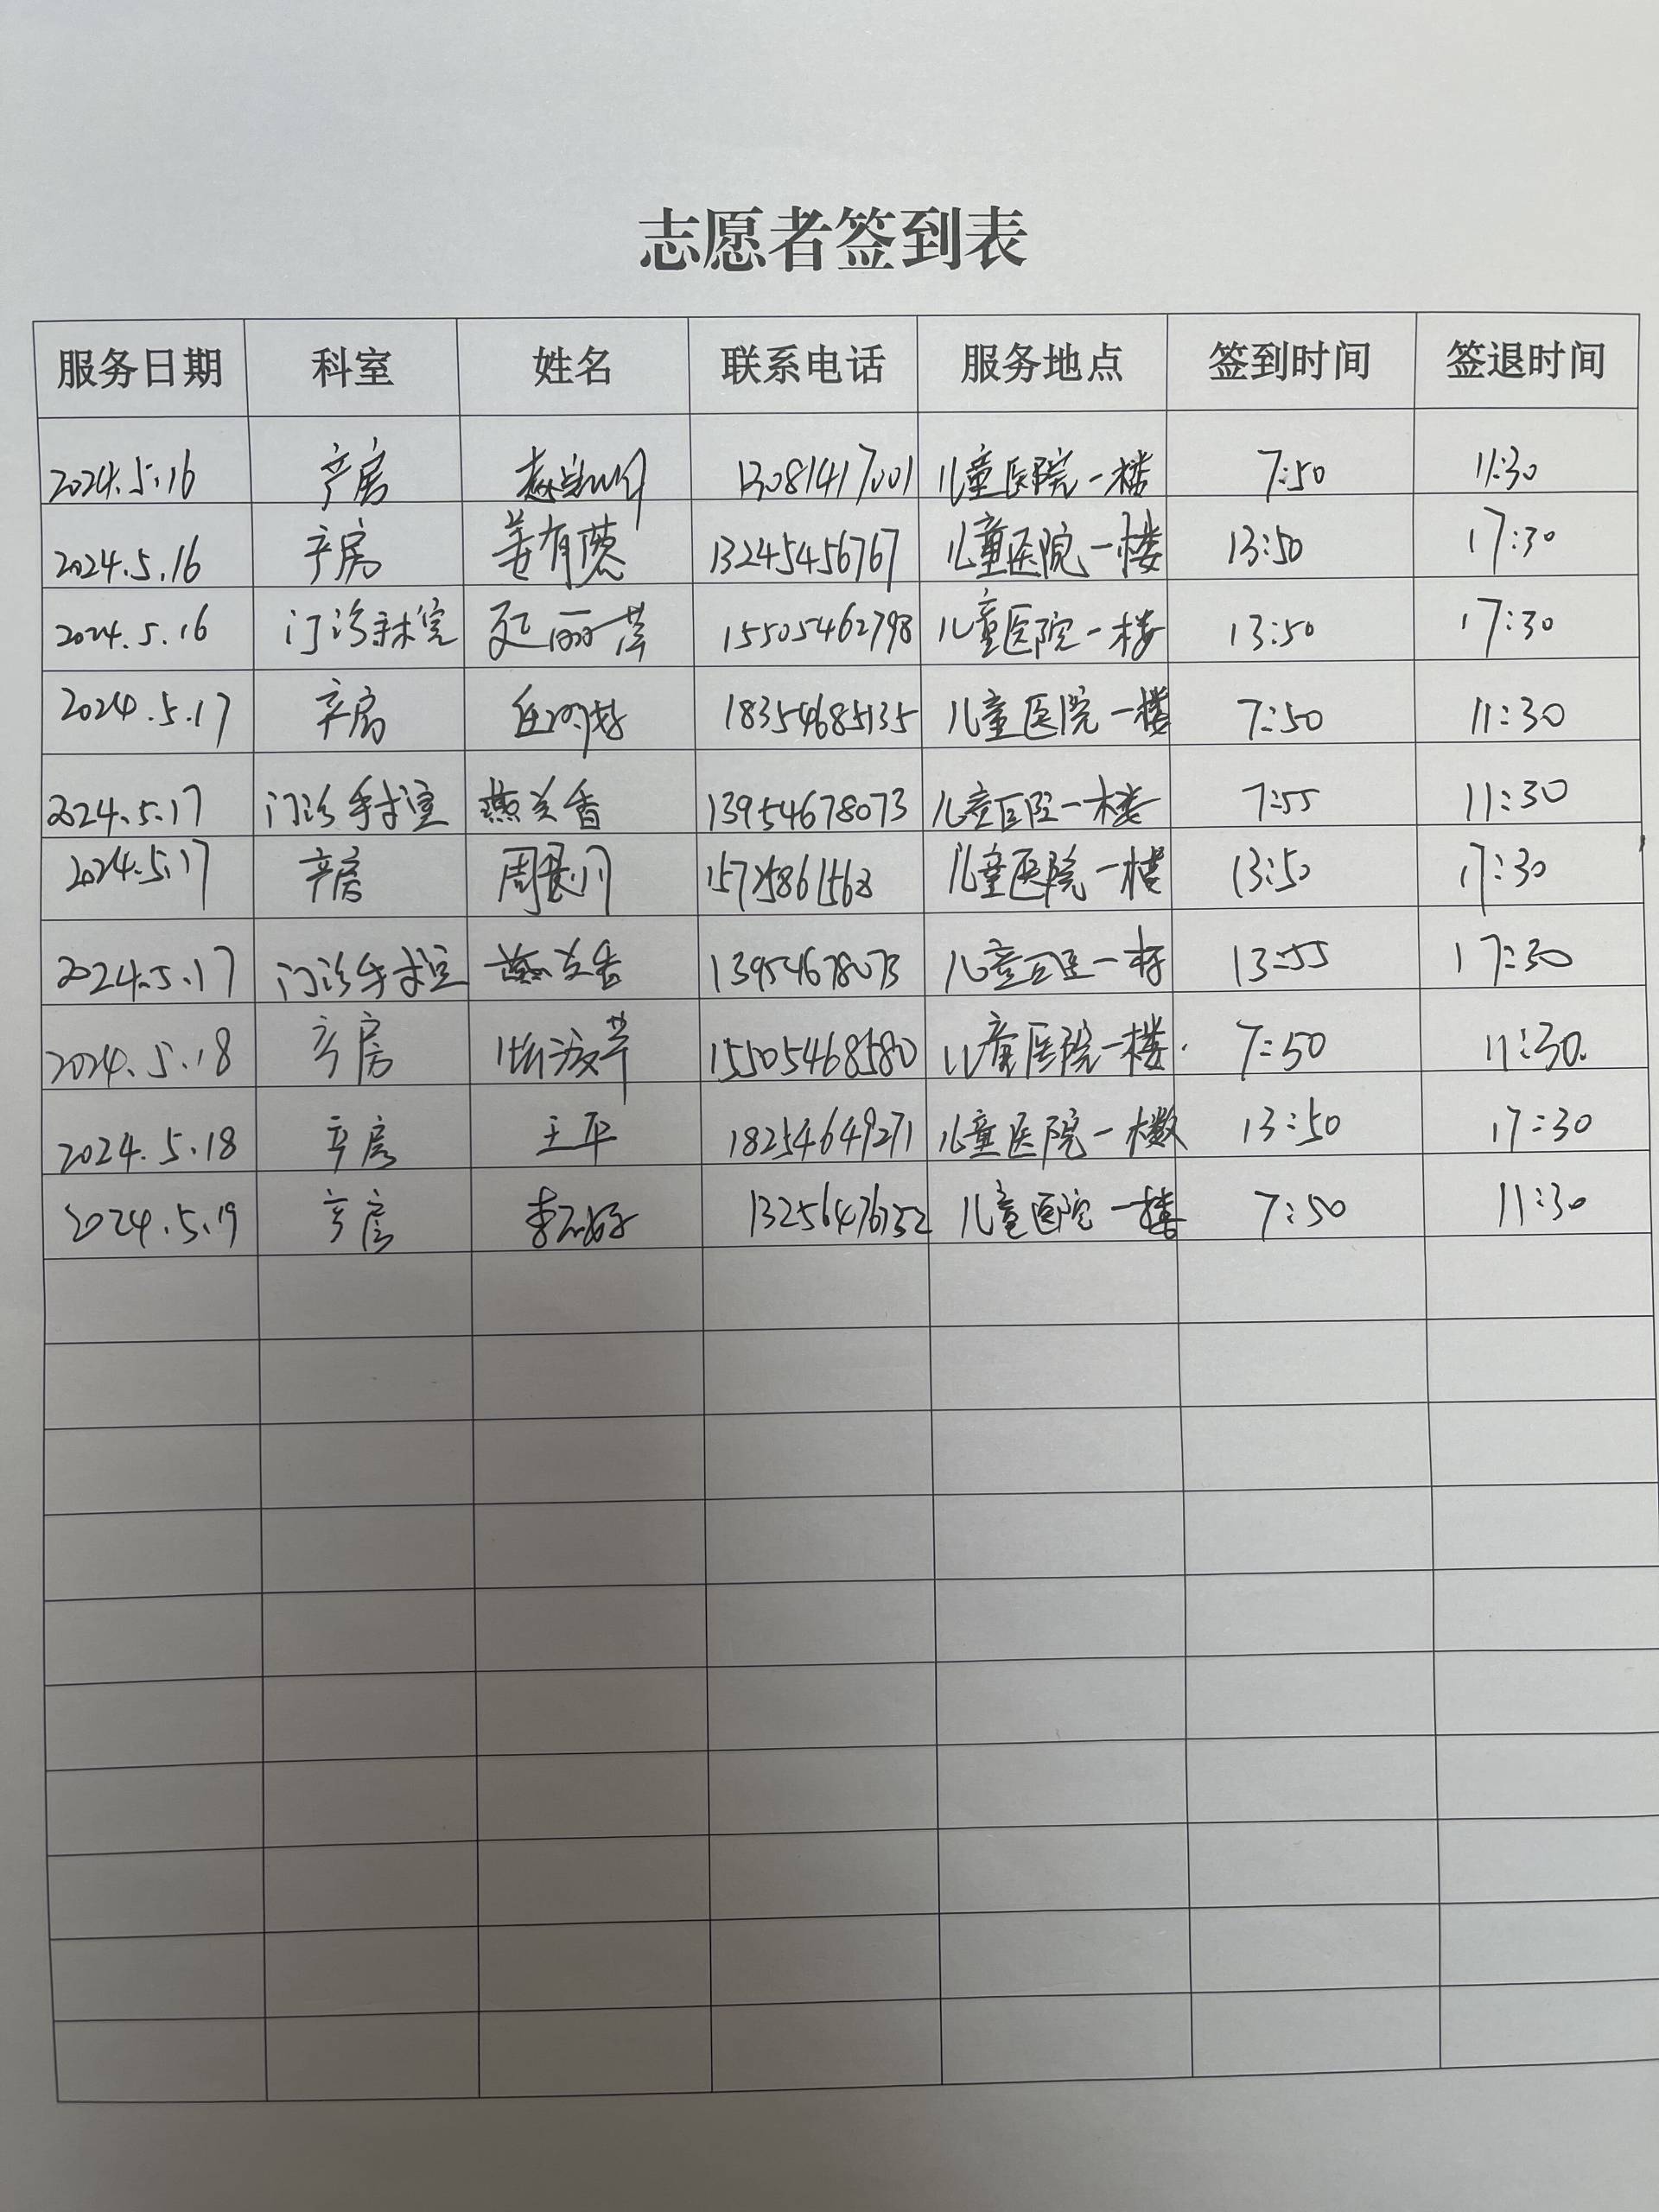 志愿者签到表
服务日期 科室 姓名 联系电话 服务地点 签到时间 签退时间
2024.5.16 产房 13081417001 儿童医院一楼 7:50 11:30
2024.5.16 产房 姜有蕙 13245456767 儿童医院一楼 13:50 17:30
2024.5.16 门诊手术室 延丽萍 15505462798 儿童医院一楼 13:50 17:30
2024.5.17 产房 18354685135 儿童医院一楼 7:50 11:30
2024.5.17 门诊手术室 燕兰香 13954678073 儿童医院一楼 7:55 11:30
2024.5.17 产房 儿童医院一楼 13:50 17:30
2024.5.17 门诊手术室 燕兰香 13954678073 儿童医院一楼 13:55 17:30
2024.5.18 产房 15505468580 儿童医院一楼. 7:50 11:30.
2024.5.18 产房 王平 18254649271 儿童医院一楼 13:50 17:30
2024.5.19 产房 儿童医院一楼 7:50 11:30